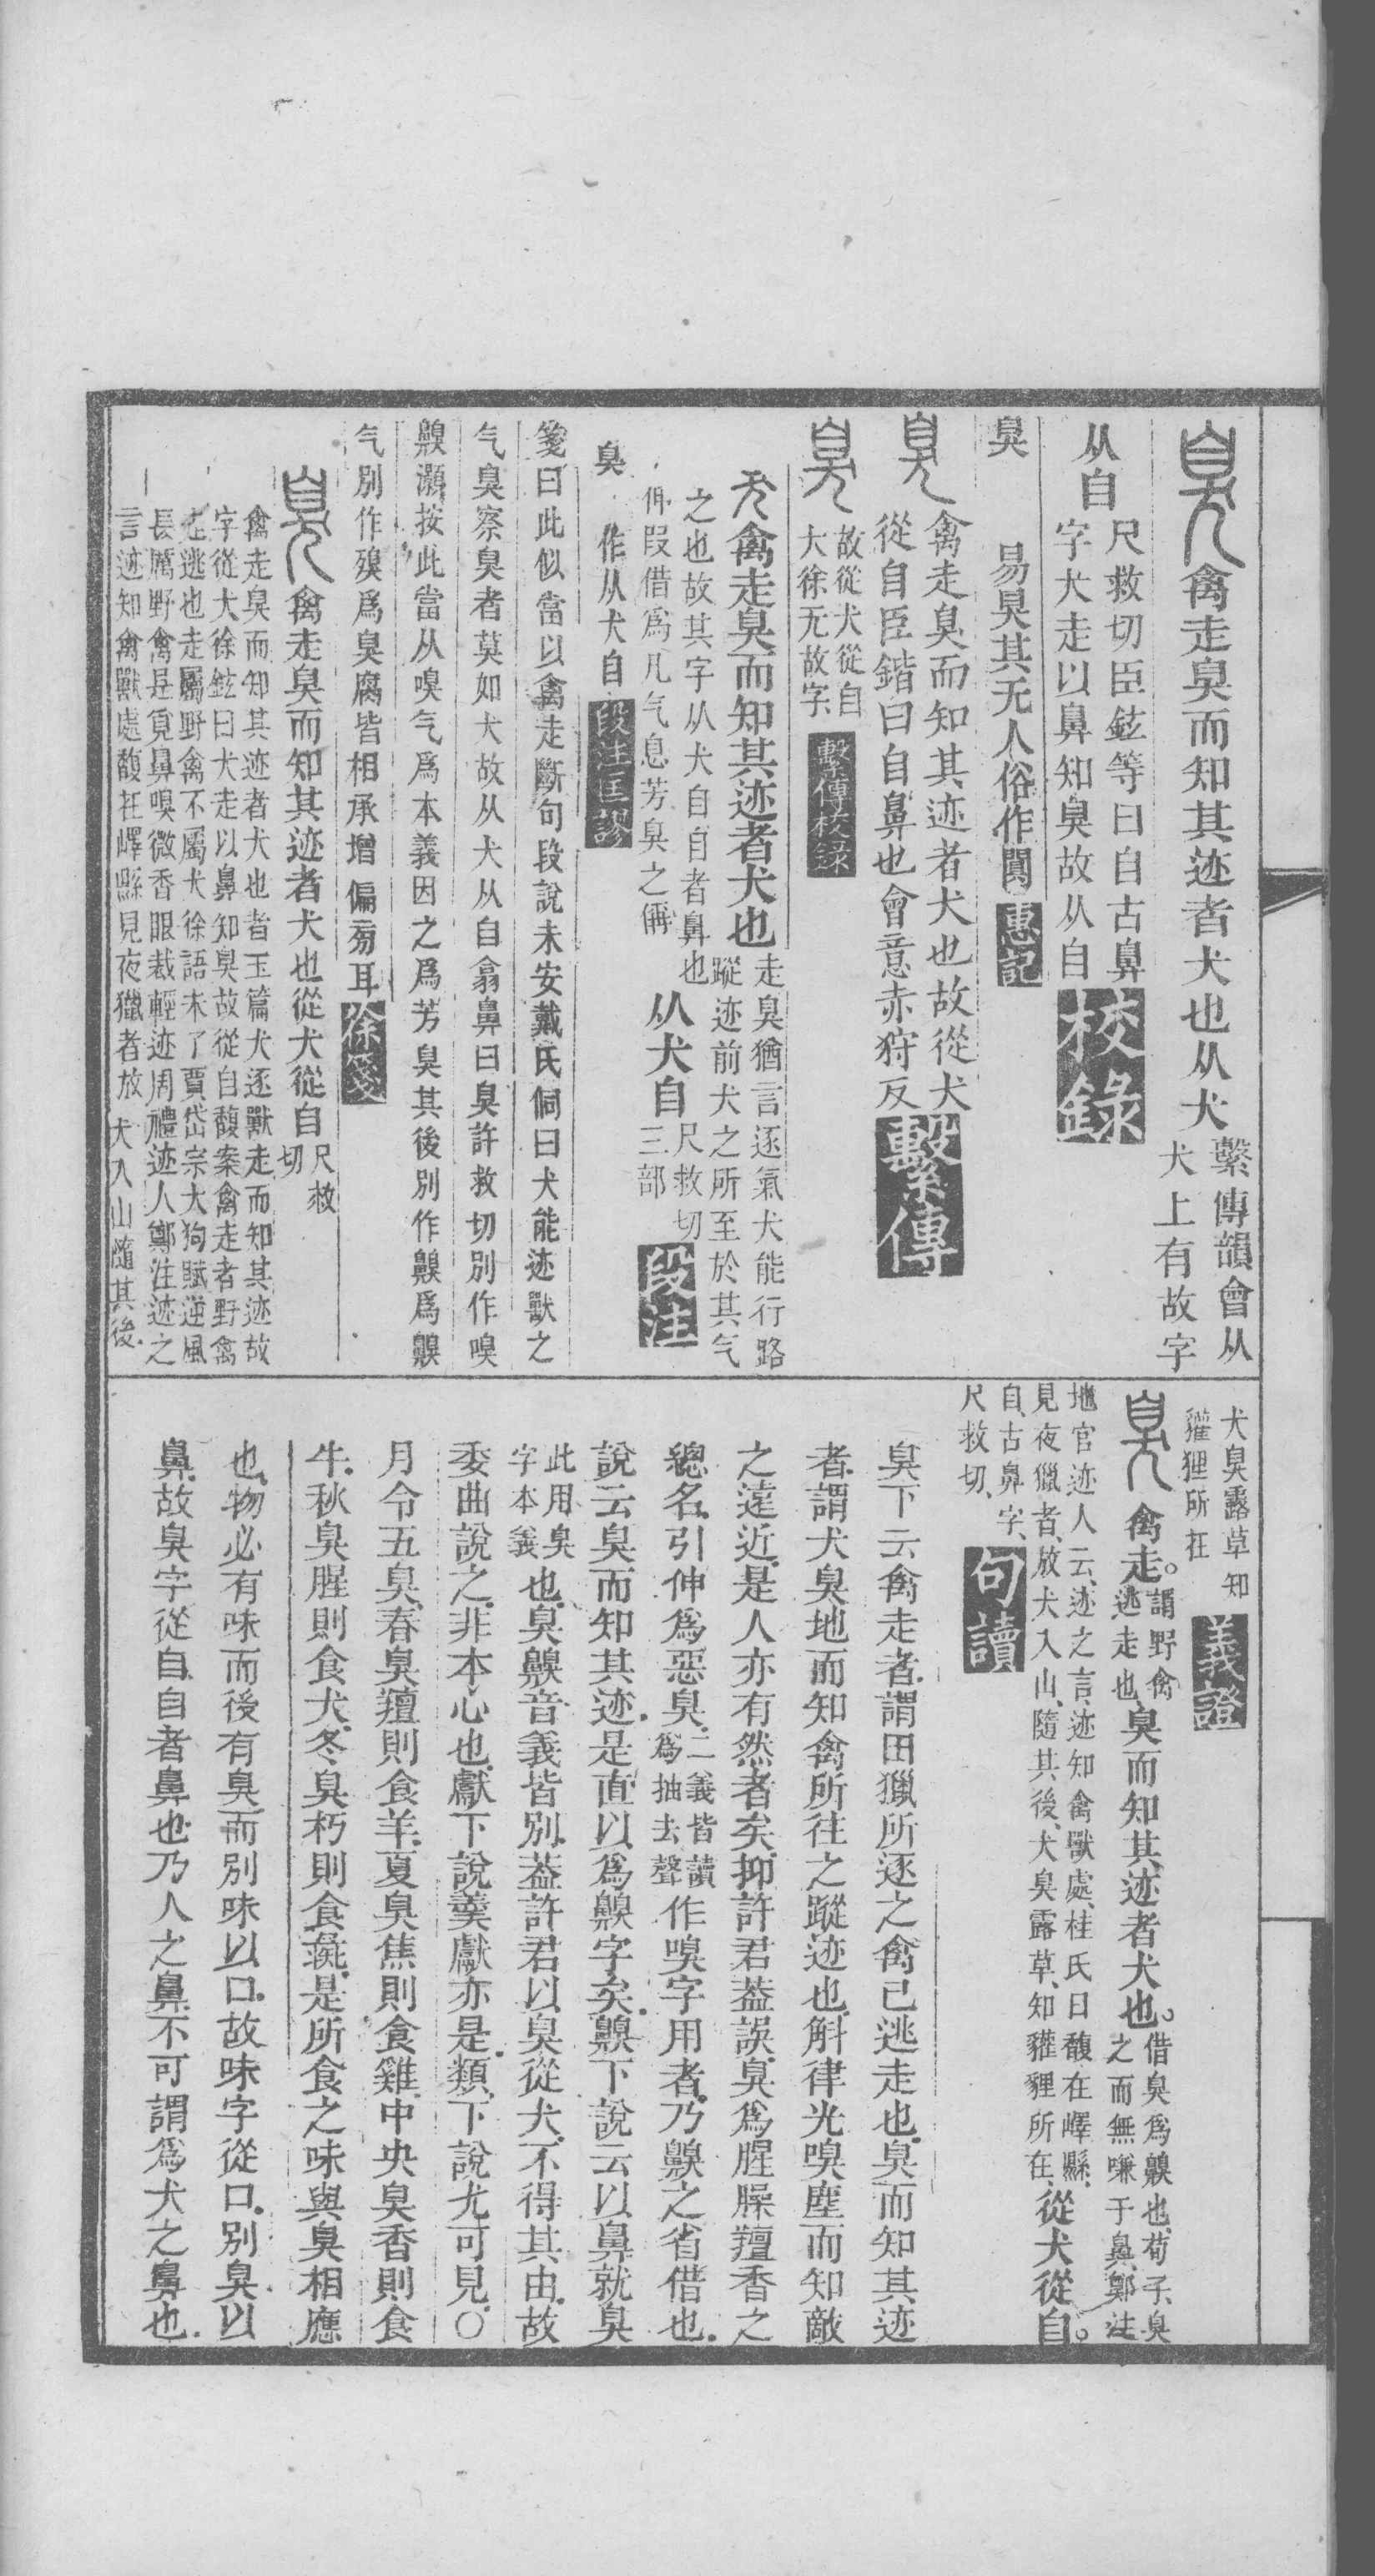 臭禽走臭而知其迹者犬也从犬繫傳韻會从犬上有故字
从自尺救切臣鉉等曰自古鼻字犬走以鼻知臭故从自校錄
臭易臭其无人俗作闃惠記
臭禽走臭而知其迹者犬也故從犬
從自臣鍇曰自鼻也會意赤狩反繫傳
臭故從犬從自大徐无故字繫傳校錄
禽走臭而知其迹者犬也走臭猶言逐氣犬能行路蹤迹前犬之所至於其气
之也故其字从犬自自者鼻也引伸叚借爲凡气息芳臭之偁从犬自尺救切三部段注
臭作从犬自段注匡謬
箋曰此似當以禽走斷句段說未安戴氏侗曰犬能迹獸之
气臭察臭者莫如犬故从犬从自翕鼻曰臭許救切別作嗅
齅灝按此當从嗅气爲本義因之爲芳臭其後別作齅爲齅
气別作殠爲臭腐皆相承增偏旁耳徐箋
臭禽走臭而知其迹者犬也從犬從自尺救切
禽走臭而知其迹者犬也者玉篇犬逐獸走而知其迹故
字從犬徐鉉曰犬走以鼻知臭故從自馥案禽走者野禽
逃也走屬野禽不屬犬徐語未了賈岱宗大狗賦逆風
長厲野禽是覓鼻嗅微香眼裁輕迹周禮迹人鄭注迹之
言迹知禽獸處馥在嶧縣見夜獵者放犬入山隨其後
犬臭露草知貛狸所在義證
臭禽走。謂野禽逃走也、臭而知其迹者犬也。借臭爲齅也、荀子、臭之而無嗛于鼻、鄭注
地官迹人云、迹之言、迹知禽獸處、桂氏曰馥在嶧縣、
見夜獵者、放犬入山、隨其後、犬臭露草、知貛貍所在、從犬從自。
自、古鼻字、尺救切、句讀
臭下云禽走者、謂田獵所逐之禽已逃走也、臭而知其迹
者、謂犬臭地而知禽所往之蹤迹也、斛律光嗅塵而知敵
之遠近、是人亦有然者矣、抑許君蓋誤、臭爲腥臊羶香之
總名、引伸爲惡臭、二義皆讀爲抽去聲作嗅字用者、乃齅之省借也、
說云臭而知其迹、是直以爲齅字矣、齅下說云以鼻就臭
此用臭字本義也、臭齅音義皆別、蓋許君以臭從犬、不得其由、故
委曲說之、非本心也、獻下說羹獻亦是、類下說尤可見、○
月令五臭、春臭羶則食羊、夏臭焦則食雞、中央臭香則食
牛、秋臭腥則食犬、冬臭朽則食彘、是所食之味與臭相應
也、物必有味而後有臭、而別味以口、故味字從口、別臭以
鼻、故臭字從自、自者鼻也、乃人之鼻、不可謂爲犬之鼻也、